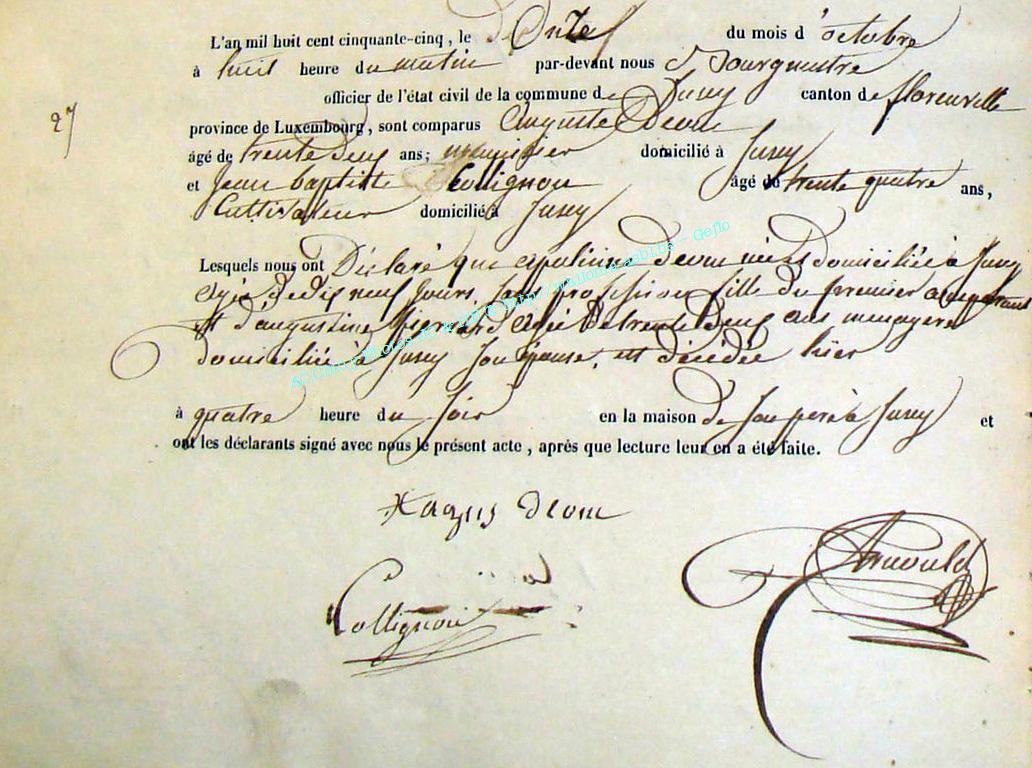 L'an mil huit cent cinquante-cinq, le Onze du mois d'octobre
à huit heure du matin par-devant nous Bourgmestre
officier de l'état civil de la commune de Jusey canton de florenville
27
province de Luxembourg, sont comparus Auguste Deom
âgé de trente Deux ans; domicilié à Jusey
et Jean baptiste Collignon âgé de trente quatre ans,
Cultivateur domicilié à Jusey
Lesquels nous ont Déclaré que apoline deom domiciliée à Jusey
agée de dix neuf Jours, sans profession fille du premier comparant
et d'augustine pierrard agée de trente Deux ans menagere
domiciliée à Jusey Son épouse, est décédée hier
à quatre heure du soir en la maison de son pere à Jusey et
ont les déclarants signé avec nous le présent acte, après que lecture leur en a été faite.
deom
Collignon
Arnould